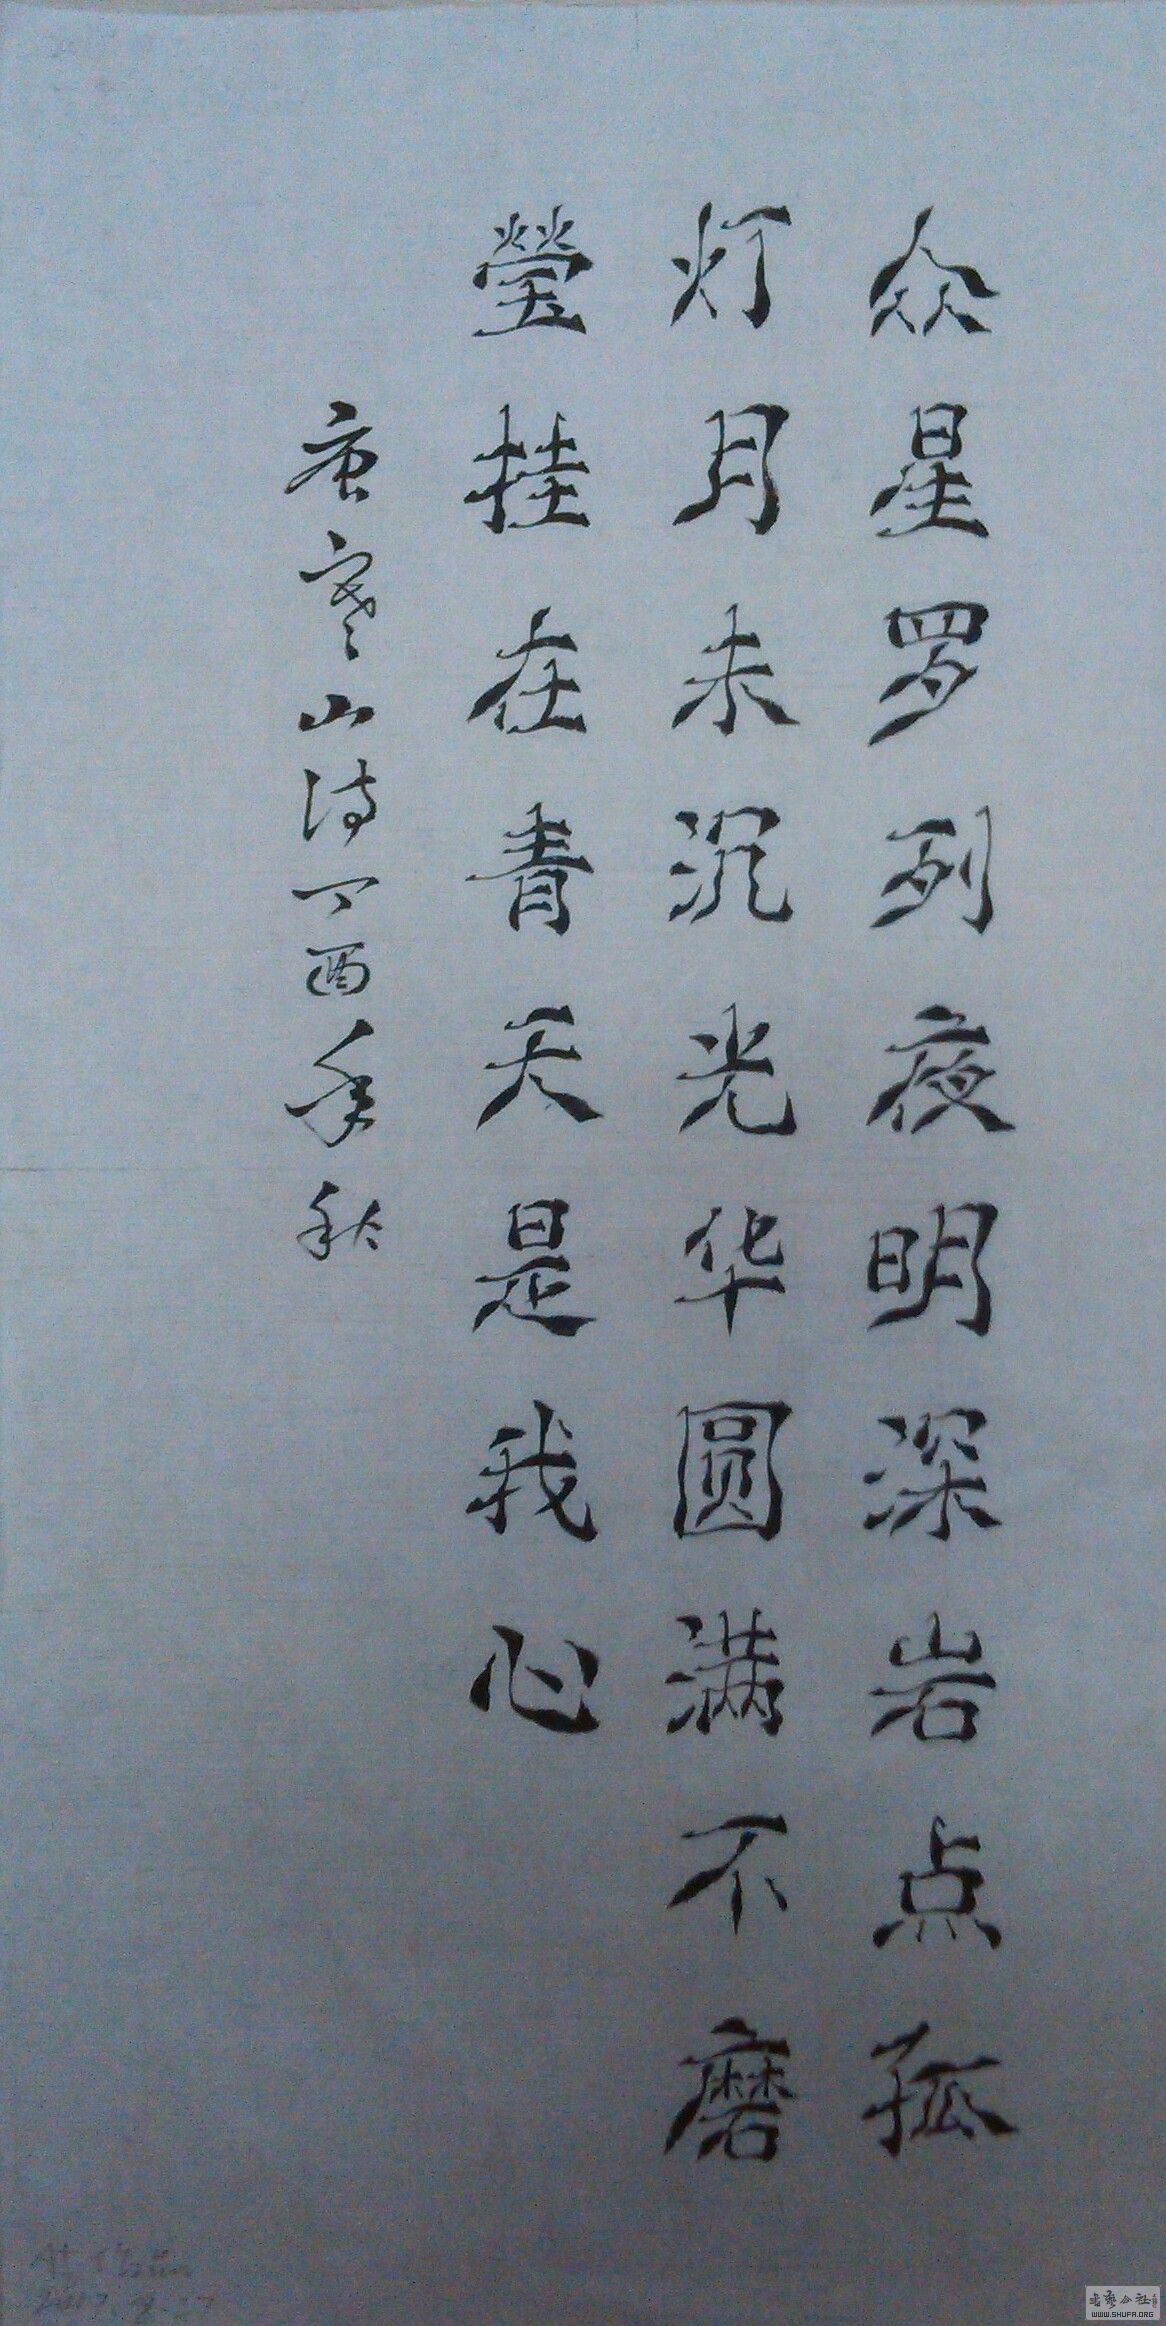 众星罗列夜明深岩点孤
灯月未沉光华圆满不磨
莹挂在青天是我心
唐寒山诗丁酉年秋
书艺公社
WWW.SHUFA.ORG